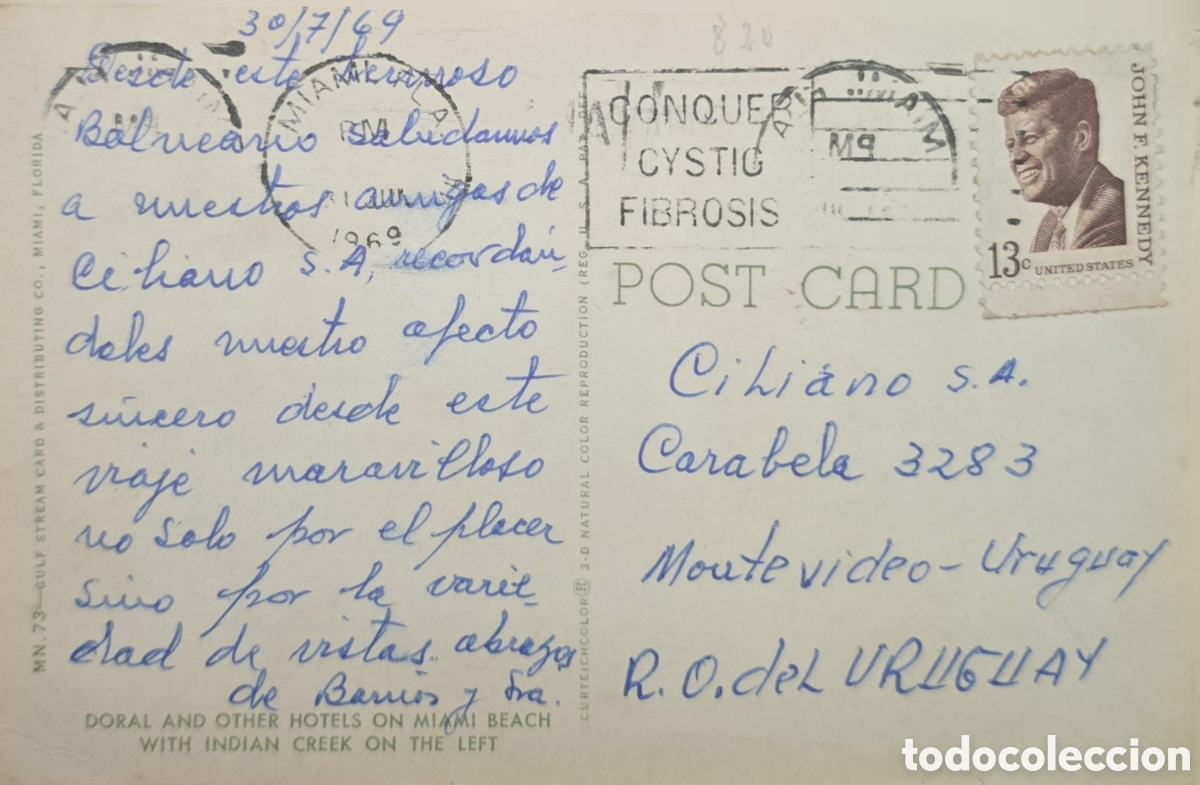 30/7/69
Desde este hermoso
Balneario saludamos
a nuestros amigos de
Ciliano S.A, recordán-
doles nuestro afecto
sincero desde este
viaje maravilloso
no solo por el placer
sino por la varie-
dad de vistas.. abrazos
de Barrios y Sra.
DORAL AND OTHER HOTELS ON MIAMI BEACH
WITH INDIAN CREEK ON THE LEFT
MN. 73—GULF STREAM CARD & DISTRIBUTING CO., MIAMI, FLORIDA
MIAMI, FLA.
PM
1969
CURTEICHCOLOR® 3-D NATURAL COLOR REPRODUCTION (REG. U. S. A. PAT. OFF.
826
CONQUER
CYSTIC
FIBROSIS
JOHN F. KENNEDY
13c UNITED STATES
POST CARD
CiLiáno S.A.
Carabela 3283
Montevideo - Uruguay
R.O. del URUGUAY
todocoleccion